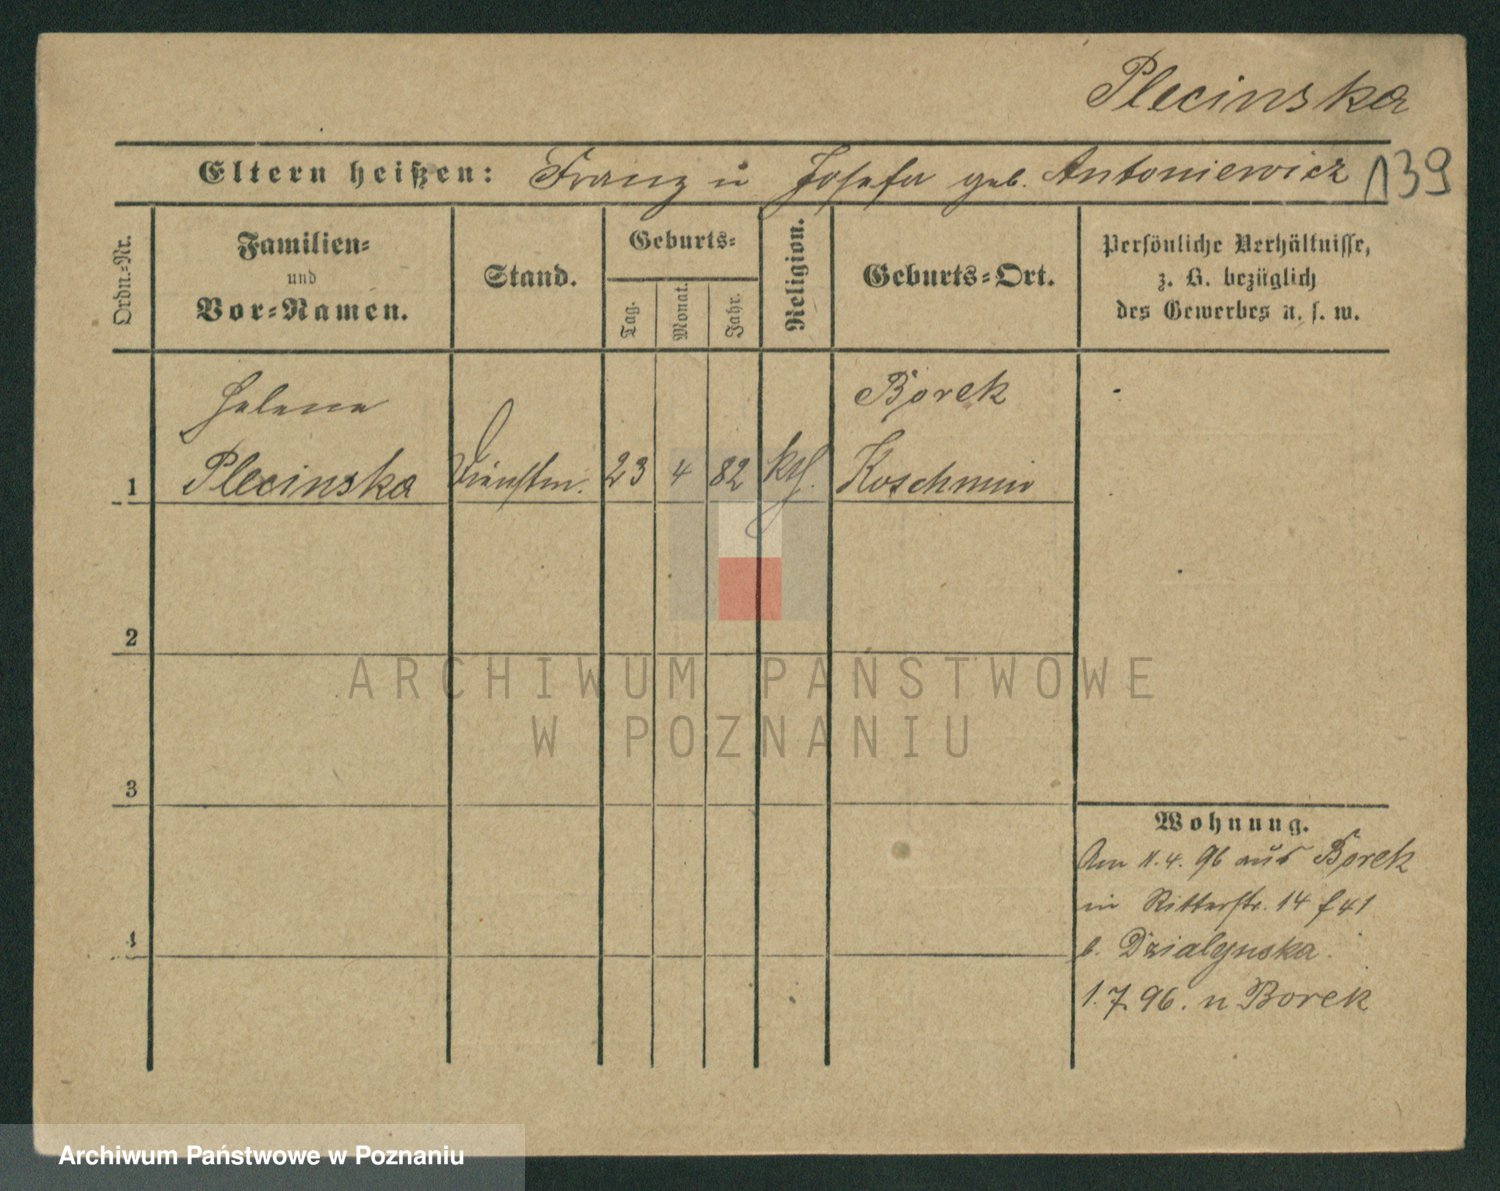 Plecinska
Eltern heißen: Franz u Josefa geb. Antoniewicz 139
Ordn.-Nr.
Familien-
und
Vor-Namen.
Stand.
Geburts-
Tag.
Monat.
Jahr.
Religion.
Geburts-Ort.
Persönliche Verhältnisse,
z. B. bezüglich
des Gewerbes u. s. w.
Helene
Borek
1 Plecinska Dienstm. 23 4 82 kth. Koschmin
2
ARCHIWUM PAŃSTWOWE
W POZNANIU
3
Wohnung.
Am 11.4.96 aus Borek
in Ritterstr. 14
b. Dzialynska.
4
1.7.96. n Borek
Archiwum Państwowe w Poznaniu